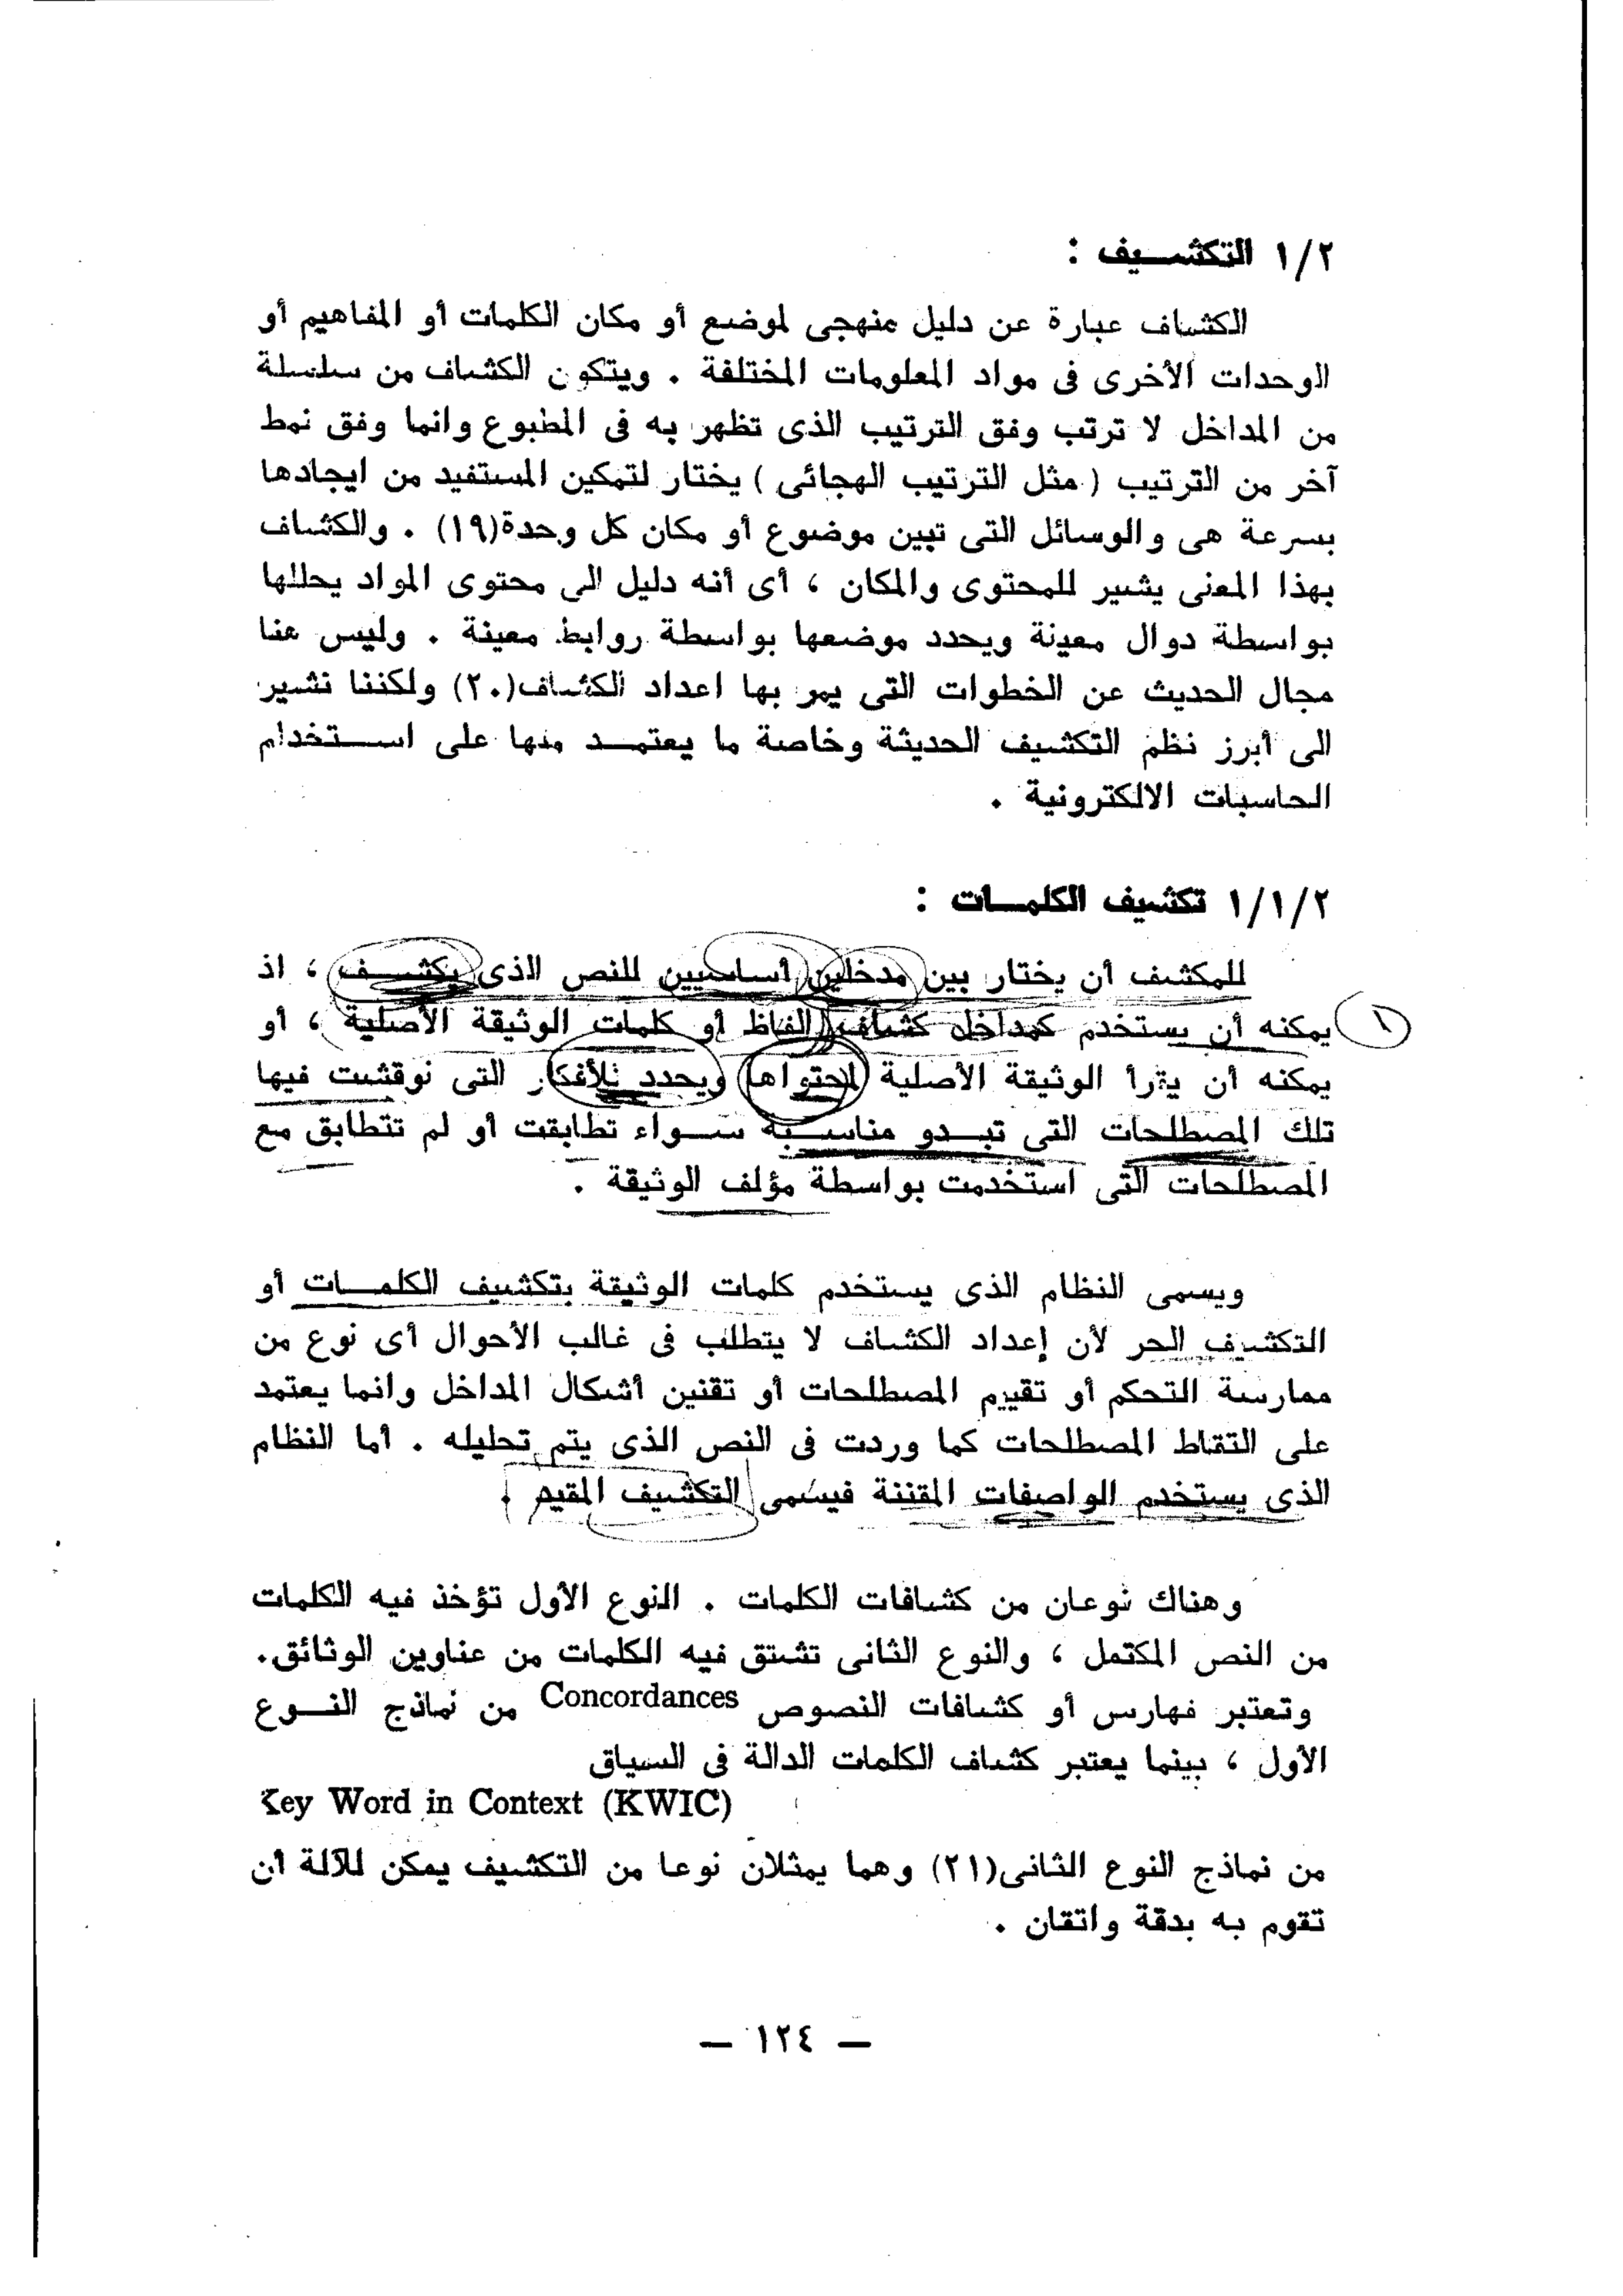 ١/٢ التكشـــيف :
الكشاف عبارة عن دليل منهجى لموضع أو مكان الكلمات أو المفاهيم أو
الوحدات الأخرى فى مواد المعلومات المختلفة . ويتكون الكشاف من سلسلة
من المداخل لا ترتب وفق الترتيب الذى تظهر به فى المطبوع وانما وفق نمط
آخر من الترتيب ( مثل الترتيب الهجائى ) يختار لتمكين المستفيد من ايجادها
بسرعة هى والوسائل التى تبين موضوع أو مكان كل وحدة(١٩) . والكشاف
بهذا المعنى يشير للمحتوى والمكان ، أى أنه دليل الى محتوى المواد يحللها
بواسطة دوال معينة ويحدد موضعها بواسطة روابط معينة . وليس هنا
مجال الحديث عن الخطوات التى يمر بها اعداد الكشاف(٢٠) ولكننا نشير
الى أبرز نظم التكشيف الحديثة وخاصة ما يعتمــد منها على اســتخدام
الحاسبات الالكترونية .
١/١/٢ تكشيف الكلمــات :
للمكشف أن يختار بين مدخلين أساسيين للنص الذى يكشــف ، اذ
يمكنه أن يستخدم كمداخل كشاف ألفاظ أو كلمات الوثيقة الأصلية ، أو
١
يمكنه أن يقرأ الوثيقة الأصلية لمحتواها ويحدد للأفكار التى نوقشت فيها
تلك المصطلحات التى تبــدو مناسـبة ســواء تطابقت أو لم تتطابق مع
المصطلحات التى استخدمت بواسطة مؤلف الوثيقة .
ويسمى النظام الذى يستخدم كلمات الوثيقة بتكشيف الكلمــات أو
التكشيف الحر لأن إعداد الكشاف لا يتطلب فى غالب الأحوال أى نوع من
ممارسة التحكم أو تقييم المصطلحات أو تقنين أشكال المداخل وانما يعتمد
على التقاط المصطلحات كما وردت فى النص الذى يتم تحليله . أما النظام
الذى يستخدم الواصفات المقننة فيسمى التكشيف المقيد .
وهناك نوعان من كشافات الكلمات . النوع الأول تؤخذ فيه الكلمات
من النص المكتمل ، والنوع الثانى تشتق فيه الكلمات من عناوين الوثائق.
وتعتبر فهارس أو كشافات النصوص Concordances من نماذج النــوع
الأول ، بينما يعتبر كشاف الكلمات الدالة فى السياق
Key Word in Context (KWIC)
من نماذج النوع الثانى(٢١) وهما يمثلان نوعا من التكشيف يمكن للآلة أن
تقوم به بدقة واتقان .
— ١٢٤ —